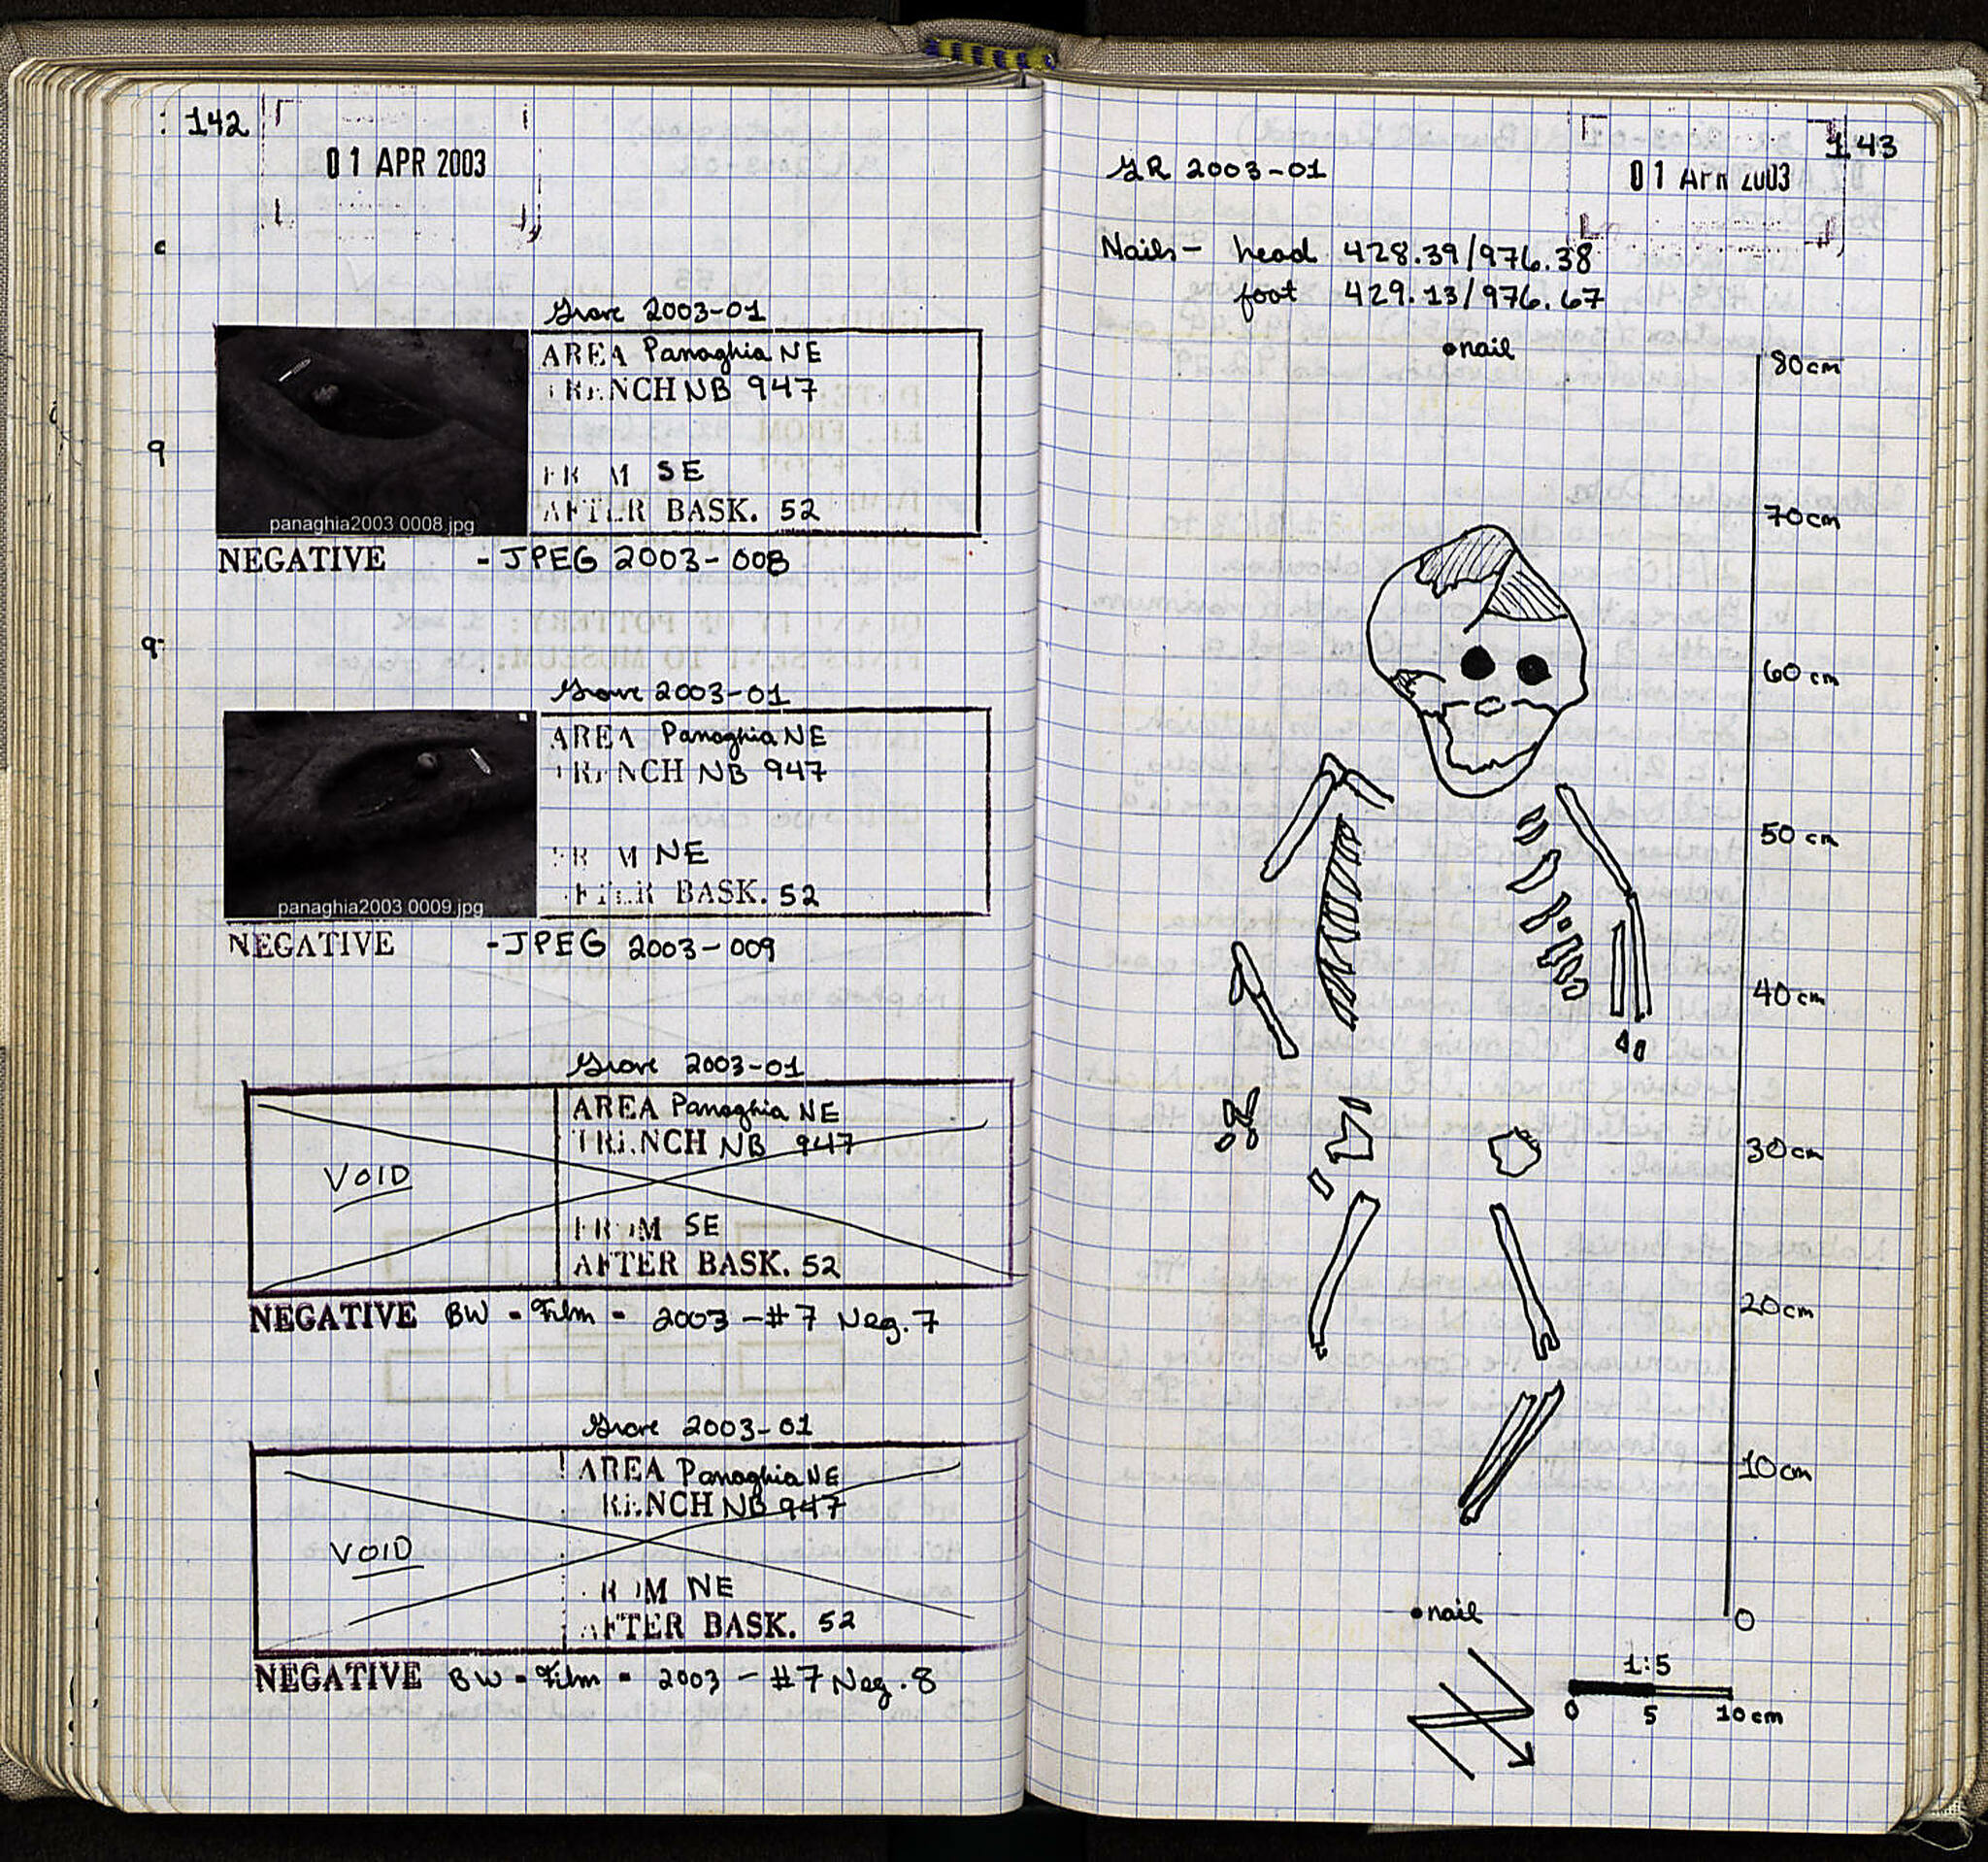 142
01 APR 2003
Grave 2003-01
AREA Panaghia NE
TRENCH NB 947
FROM SE
AFTER BASK. 52
panaghia2003 0008.jpg
NEGATIVE - JPEG 2003-008
Grave 2003-01
AREA Panaghia NE
TRENCH NB 947
FROM NE
AFTER BASK. 52
panaghia2003 0009.jpg
NEGATIVE -JPEG 2003-009
Grave 2003-01
AREA Panaghia NE
TRENCH NB 947
VOID
FROM SE
AFTER BASK. 52
NEGATIVE BW - Film - 2003 -#7 Neg. 7
Grave 2003-01
AREA Panaghia NE
TRENCH NB 947
VOID
FROM NE
AFTER BASK. 52
NEGATIVE BW - Film - 2003 - #7 Neg. 8
143
GR 2003-01
01 APR 2003
Nails- head 428.39/976.38
foot 429.13/976.67
nail
80cm
70cm
60cm
50cm
40cm
30cm
20cm
10cm
nail
0
1:5
0 5 10cm